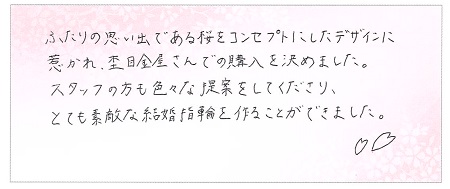 ふたりの思い出である桜をコンセプトにしたデザインに
惹かれ、杢目金屋さんでの購入を決めました。
スタッフの方も色々な提案をしてくださり、
とても素敵な結婚指輪を作ることができました。